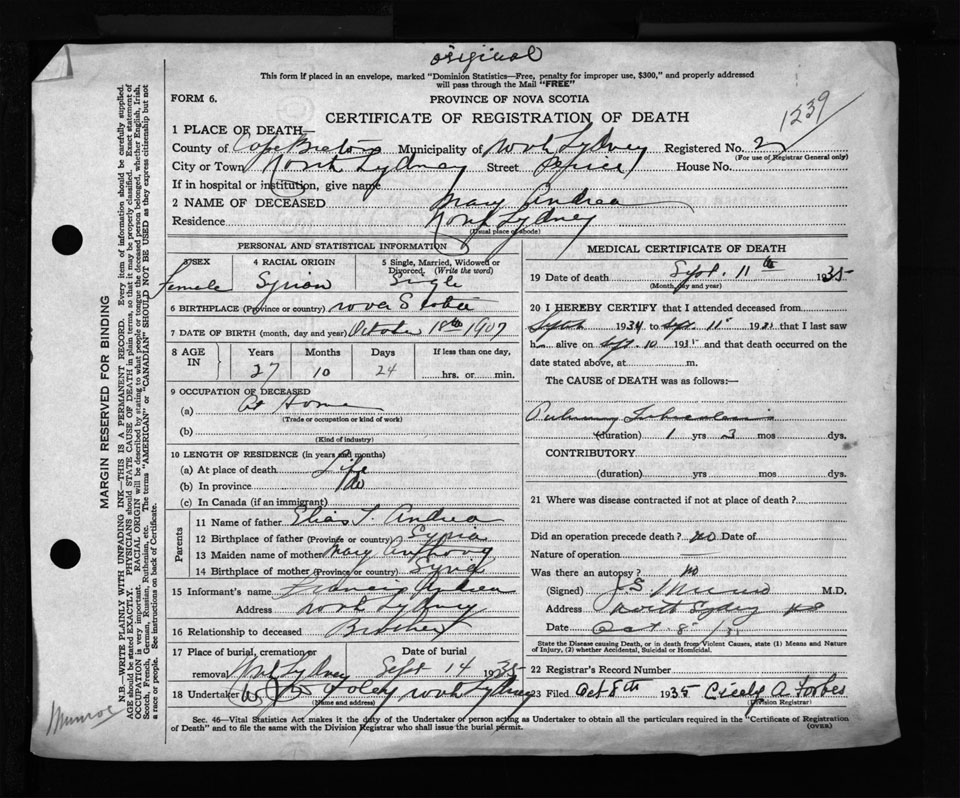 original
This form if placed in an envelope, marked "Dominion Statistics—Free, penalty for improper use, $300," and properly addressed
will pass through the Mail "FREE"
FORM 6.
PROVINCE OF NOVA SCOTIA
1239
CERTIFICATE OF REGISTRATION OF DEATH
1 PLACE OF DEATH—
County of Cape Breton Municipality of North Sydney Registered No. 2
(For use of Registrar General only)
City or Town North Sydney Street House No.
If in hospital or institution, give name
2 NAME OF DECEASED Mary Andrea
Residence North Sydney
(Usual place of abode)
PERSONAL AND STATISTICAL INFORMATION
3 SEX Female
4 RACIAL ORIGIN Syrian
5 Single, Married, Widowed or
Divorced. (Write the word)
Single
6 BIRTHPLACE (Province or country) Nova Scotia
7 DATE OF BIRTH (month, day and year) October 18th 1907
8 AGE IN
Years Months Days If less than one day,
27 10 24 hrs. or min.
9 OCCUPATION OF DECEASED
(a) At Home
(Trade or occupation or kind of work)
(b)
(Kind of industry)
10 LENGTH OF RESIDENCE (in years and months)
(a) At place of death Life
(b) In province do
(c) In Canada (if an immigrant)
Parents
11 Name of father Elias T. Andrea
12 Birthplace of father (Province or country) Syria
13 Maiden name of mother Mary Anthony
14 Birthplace of mother (Province or country) Syria
15 Informant's name Francis Andrea
Address North Sydney
16 Relationship to deceased Brother
17 Place of burial, cremation or removal North Sydney
Date of burial Sept 14 1935
18 Undertaker Foley North Sydney
(Name and address)
MEDICAL CERTIFICATE OF DEATH
19 Date of death Sept. 11th 1935
(Month, day and year)
20 I HEREBY CERTIFY that I attended deceased from
Sept 1934 to Sept. 11 that I last saw
h alive on Sept. 10 1935 and that death occurred on the
date stated above, at m.
The CAUSE of DEATH was as follows:—
Pulmonary Tuberculosis
(duration) 1 yrs 3 mos dys.
CONTRIBUTORY
(duration) yrs. mos. dys.
21 Where was disease contracted if not at place of death?
Did an operation precede death? no Date of
Nature of operation
Was there an autopsy? no
(Signed) J S Munro M.D.
Address North Sydney NS
Date Oct 8
State the Disease causing Death, or in death from Violent Causes, state (1) Means and Nature
of Injury, (2) whether Accidental, Suicidal or Homicidal.
22 Registrar's Record Number
23 Filed Oct 8th 1935 Cicely A. Forbes
(Division Registrar)
Sec. 46—Vital Statistics Act makes it the duty of the Undertaker or person acting as Undertaker to obtain all the particulars required in the "Certificate of Registration
of Death" and to file the same with the Division Registrar who shall issue the burial permit.
(OVER)
MARGIN RESERVED FOR BINDING
N.B.—WRITE PLAINLY WITH UNFADING INK—THIS IS A PERMANENT RECORD. Every item of information should be carefully supplied.
AGE should be stated EXACTLY. PHYSICIANS should STATE CAUSE OF DEATH in plain terms, so that it may be properly classified. Exact statement of
OCCUPATION is very important. RACIAL ORIGIN will be described by stating to what people or tongue the deceased person belonged, whether English, Irish,
Scotch, French, German, Russian, Ruthenian, etc. The terms "AMERICAN" or "CANADIAN" SHOULD NOT BE USED as they express citizenship but not
a race or people. See instructions on back of Certificate.
Munroe